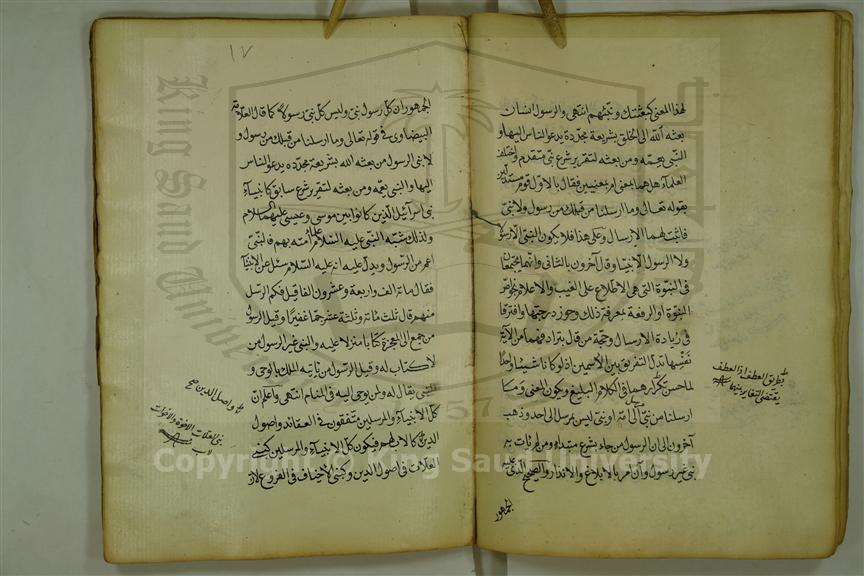 لهذا المعنى كبعثتك ونبئهم انتهى والرسول انسان
بعثه الله الى الخلق بشريعة مجددة يدعو الناس اليها و
النبي يعمه ومن بعثه لتقرير شرع نبي متقدم واختلف
العلماء هل هما بمعنى ام بمعنيين فقال بالاول قوم مستدلين
بقوله تعالى وما ارسلنا من قبلك من رسول ولا نبي
فاثبت لهما الارسال وعلى هذا فلا يكون النبي الا رسولا
ولا الرسول الا نبيا وقال آخرون بالثاني وانهما يجتمعان
في النبوة التي هي الاطلاع على الغيب والاعلام بخواص
النبوة او الرفعة بمعرفة ذلك وحوز درجتها وافترقا
في زيادة الارسال وحجة من قال بترادفهما من الآية
نفسها تدل التفريق بين الاسمين اذ لو كانا شيئا واحدا
لما حسن تكرارهما في الكلام البليغ ويكون المعنى وما
ارسلنا من نبي الى امة او نبي ليس بمرسل الى احد وذهب
آخرون الى ان الرسول من جاء بشرع مبتداء ومن لم يات به
نبي غير رسول وان امر بالابلاغ والانذار والصحيح الذي عليه
الجمهور
بطريق العطف اذ العطف
يقتضي التغاير بينهما
١٧
الجمهور ان كل رسول نبي وليس كل نبي رسولا كما قال العلامة
البيضاوي في قوله تعالى وما ارسلنا من قبلك من رسول و
لا نبي الرسول من بعثه الله بشريعة مجددة يدعو الناس
اليها والنبي يعمه ومن بعثه لتقرير شرع سابق كانبياء
بني اسرآئيل الذين كانوا بين موسى وعيسى عليهما السلام
ولذلك شبه النبي عليه السلام علماء امته بهم فالنبي
اعم من الرسول ويدل عليه انه عليه السلام سئل عن الانبيآء
فقال مائة الف واربعة وعشرون الفا قيل فكم الرسل
منهم قال ثلث مائة وثلثة عشر جما غفيرا وقيل الرسول
من جمع الى المعجزة كتابا منزلا عليه والنبي غير الرسول من
لا كتاب له وقيل الرسول من ياتيه الملك بالوحي و
النبي يقال له ولمن يوحى اليه في المنام انتهى واعلم ان
كل الانبياء والمرسلين متفقون في العقائد واصول
الدين فيكون كل الانبياء والمرسلين كبني
العلات في اصول الدين وكبني الاخياف في الفروع
واصل الدين صح
بني العلات الاخوة والاخوات
لاب
King Saud University
1957
Copyright © King Saud University